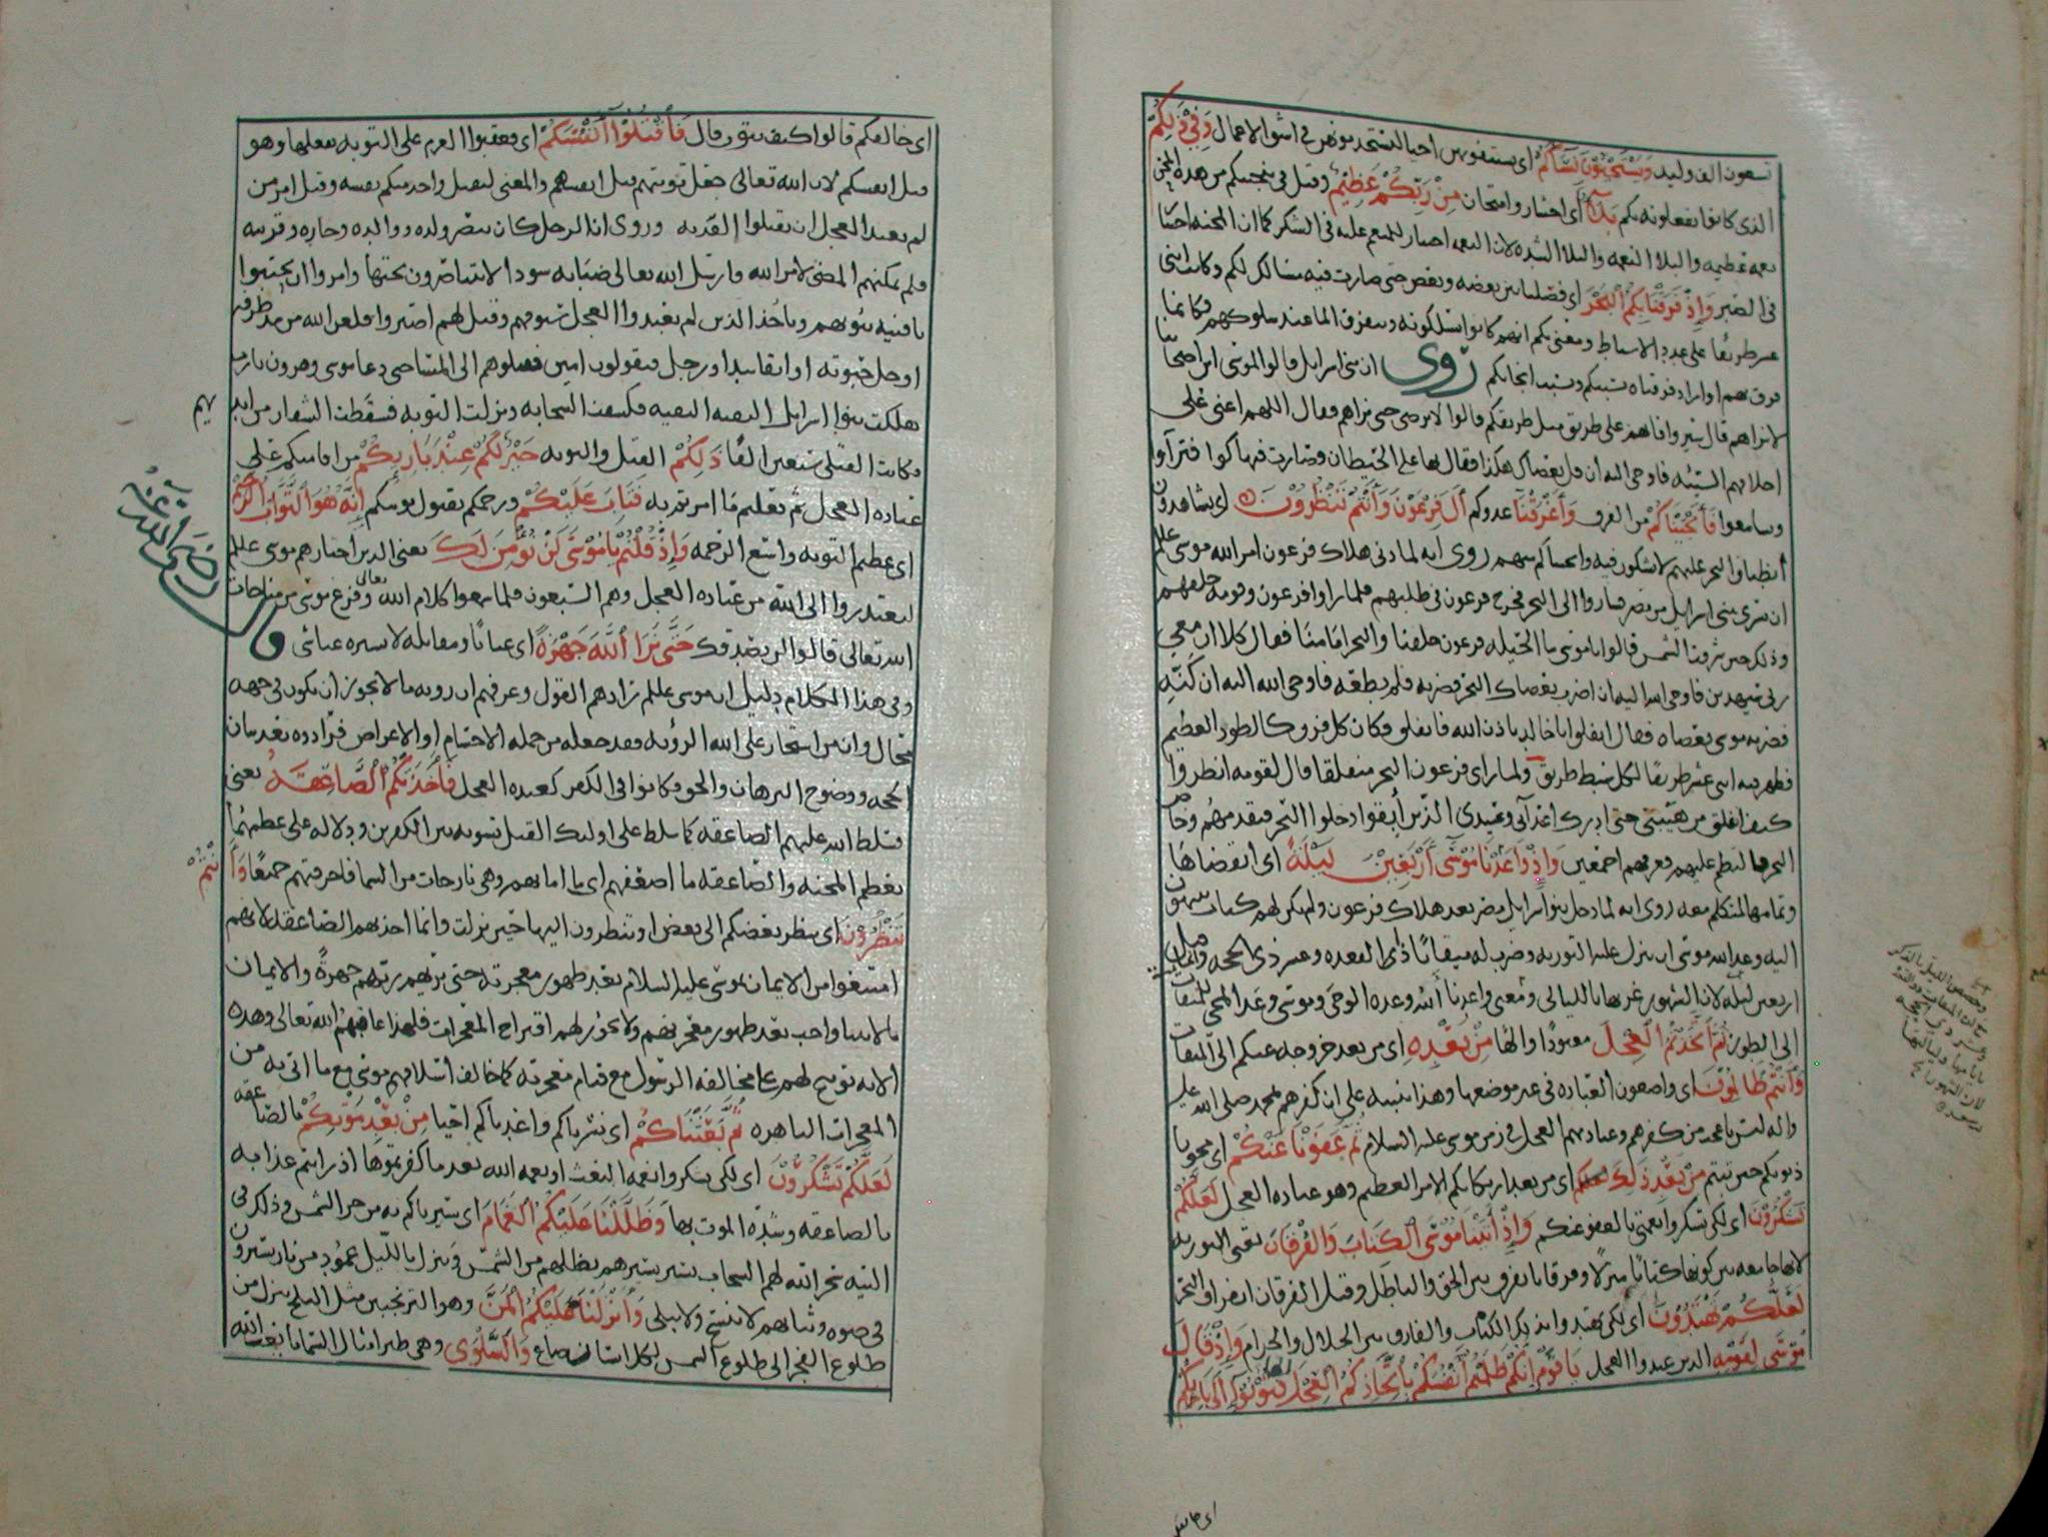 تسعون الف وليد وَيَسْتَحْيُونَ نِسَاءَكُمْ اي يستبقونهن احيا ليستخدمونهن في اشق الاعمال وَفِي ذَلِكُمْ
الذي كانوا يفعلونه بكم بَلَاءٌ اي اختبار وامتحان مِنْ رَبِّكُمْ عَظِيمٌ وقيل في تنجيتكم من هذه المحن
نعمة عظيمه والبلا النعمه والبلا الشده لان النعمه اختبار للمنعم عليه في الشكر كما ان المحنه اختبار
في الصبر وَإِذْ فَرَقْنَا بِكُمُ الْبَحْرَ اي فصلنا بين بعضه وبعض حتى صارت فيه مسالك لكم وكانت اثني
عشر طريقا على عدد الاسباط ومعنى بكم انهم كانوا يسلكونه ويتفرق الما عند سلوكهم فكانما
فرق بهم او اراد فرقناه بسببكم وبسبب انجائكم روي ان بني اسرايل قالوا لموسى اين اصحابنا
لا نراهم قال سيروا فانهم على طريق مثل طريقكم قالوا لا نرضى حتى نراهم فقال اللهم اعني على
اخلاقهم السيئه فاوحى اليه ان قل بعصاك هكذا فقال بها على الحيطان فصارت فيها كوا فتراءوا
وتسامعوا فَأَنْجَيْنَاكُمْ من الغرق وَأَغْرَقْنَا عدوكم آلَ فِرْعَوْنَ وَأَنْتُمْ تَنْظُرُونَ اي تشاهدون
انطباق البحر عليهم لا تشكون فيه وانجاكم منهم روي انه لما دنى هلاك فرعون امر الله موسى عللم
ان يسري ببني اسرايل من مصر فساروا الى البحر فخرج فرعون في طلبهم فلما راوا فرعون وقومه خلفهم
وذلك حين شرقت الشمس قالوا يا موسى ما الحيله فرعون خلفنا والبحر امامنا فقال كلا ان معي
ربي سيهدين فاوحى الله اليه ان اضرب بعصاك البحر فضربه فلم يطعه فاوحى الله اليه ان كنّه
فضربه موسى بعصاه فقال انفلق يا ابا خالد باذن الله فانفلق فكان كل فرق كالطود العظيم
فظهر فيه اثني عشر طريقا لكل سبط طريق ولما راى فرعون البحر منفلقا قال لقومه انظروا
كيف انفلق من هيبتي حتى ادرك اعدآئي وعبيدي الذين أبقوا ادخلوا البحر فتقدمهم وخاض
البحر فالتطم عليهم فغرقهم اجمعين وَإِذْ وَاعَدْنَا مُوسَى أَرْبَعِينَ لَيْلَةً اي انقضاها
وتمامها للتكلم معه روي انه لما دخل بنوا اسرايل مصر بعد هلاك فرعون ولم يكن لهم كتاب ينتهون
اليه وعد الله موسى ان ينزل عليه التوريه وضرب له ميقاتا ذا القعده وعشر ذي الحجه وقيل
اربعين ليله لان الشهور غررها بالليالي ومعنى واعدنا ان الله وعده الوحي وموسى وعد المجي للميقات
الى الطور ثُمَّ اتَّخَذْتُمُ الْعِجْلَ معبودا والها مِنْ بَعْدِهِ اي من بعد خروجه عنكم الى الميقات
وَأَنْتُمْ ظَالِمُونَ اي واضعون العباده في غير موضعها وهذا تنبيه على ان كفرهم بمحمد صلى الله عليه
واله ليس باعجب من كفرهم وعبادتهم العجل في زمن موسى عليه السلام ثُمَّ عَفَوْنَا عَنْكُمْ اي محونا
ذنوبكم حين تبتم مِنْ بَعْدِ ذَلِكَ اي من بعد ارتكابكم الامر العظيم وهو عباده العجل لَعَلَّكُمْ
تَشْكُرُونَ اي لكي تشكروا نعمتي بالعفو عنكم وَإِذْ آتَيْنَا مُوسَى الْكِتَابَ وَالْفُرْقَانَ يعني التوريه
لانها جامعه بين كونها كتابا منزلا وفرقانا يفرق بين الحق والباطل وقيل الفرقان انفراق البحر
لَعَلَّكُمْ تَهْتَدُونَ اي لكي تهتدوا بذلك الكتاب والفارق بين الحلال والحرام وَإِذْ قَالَ
مُوسَى لِقَوْمِهِ الذين عبدوا العجل يَا قَوْمِ إِنَّكُمْ ظَلَمْتُمْ أَنْفُسَكُمْ بِاتِّخَاذِكُمُ الْعِجْلَ فَتُوبُوا إِلَى بَارِئِكُمْ
اي خالقكم قالوا كيف نتوب قال فَاقْتُلُوا أَنْفُسَكُمْ اي فعقبوا العزم على التوبه بفعلها وهو
قتل انفسكم لان الله تعالى جعل توبتهم قتل انفسهم والمعنى ليقتل واحد منكم نفسه وقيل امر من
لم يعبد العجل ان يقتلوا العبده وروي ان الرجل كان يبصر ولده ووالده وجاره وقريبه
فلم يمكنهم المضي لامر الله فارسل الله تعالى ضبابه سودا لا يتباصرون تحتها وامروا ان يحتبوا
بافنيه بيوتهم وياخذ الذين لم يعبدوا العجل سيوفهم وقيل لهم اصبروا فلعن الله من مد طرفه
او حل حبوته او اتقا بيد او رجل فيقولون امين فقتلوهم الى المسا حتى دعا موسى وهرون يا رب
هلكت بنوا اسرايل البقيه البقيه فكشفت السحابه ونزلت التوبه فسقطت الشفار من ايديهم
فكانت القتلى سبعين الفا ذَلِكُمْ القتل والتوبه خَيْرٌ لَكُمْ عِنْدَ بَارِئِكُمْ من اقامتكم على
عباده العجل ثم فعلتم ما امرتم به فَتَابَ عَلَيْكُمْ ورحمكم بقبول توبتكم إِنَّهُ هُوَ التَّوَّابُ الرَّحِيمُ
اي عظيم التوبه واسع الرحمه وَإِذْ قُلْتُمْ يَا مُوسَى لَنْ نُؤْمِنَ لَكَ يعني الذين اختارهم موسى عللم
ليعتذروا الى الله من عباده العجل وهم السبعون فلما سمعوا كلام الله تعالى وفرغ موسى من مناجات
الله تعالى قالوا لن نصدقك حَتَّى نَرَى اللَّهَ جَهْرَةً اي عيانا ومقابله لا يستره عنا شي قال
رضي الله عنه
وفي هذا الكلام دليل ان موسى عللم رادهم القول وعرفهم ان رويه ما لا يجوز ان يكون في جهه
محال وان من استجاز على الله الرؤيه فقد جعله من جمله الاجسام او الاعراض فرادوه بعد بيان
الحجه ووضوح البرهان ولجوا فكانوا في الكفر كعبده العجل فَأَخَذَتْكُمُ الصَّاعِقَةُ يعني
فسلط الله عليهم الصاعقه كما سلط على اوليك القتل تسويه بين الكفرين ودلاله على عظمهما
بعظم المحنه والصاعقه ما اصعقهم اي ما اماتهم وهي نار جات من السما فاحرقتهم جميعا وَأَنْتُمْ
تَنْظُرُونَ اي ينظر بعضكم الى بعض او تنظرون اليها حين نزلت وانما اخذتهم الصاعقه لانهم
امتنعوا من الايمان بموسى عليه السلام بعد ظهور معجزته حتى يريهم ربهم جهرة والايمان
بالانبيا واجب بعد ظهور معجزتهم ولا يجوز لهم اقتراح المعجزات فلهذا عاقبهم الله تعالى وهذه
الايه توبيخ لهم على مخالفه الرسول مع قيام معجزته كما خالف اسلافهم موسى مع ما اتى به من
المعجزات الباهره ثُمَّ بَعَثْنَاكُمْ اي نشرناكم واعدناكم احيا مِنْ بَعْدِ مَوْتِكُمْ بالصاعقه
لَعَلَّكُمْ تَشْكُرُونَ اي لكي تشكروا نعمه البعث او نعمه الله بعد ما كفرتموها اذ رايتم عذابه
بالصاعقه وشدّه الموت بها وَظَلَّلْنَا عَلَيْكُمُ الْغَمَامَ اي ستركم به من حر الشمس وذلك في
التيه سخر الله لهم السحاب تسير بسيرهم يظللهم من الشمس وينزل بالليل عمود من نار يسيرون
في ضوه وثيابهم لا تتسخ ولا تبلى وَأَنْزَلْنَا عَلَيْكُمُ الْمَنَّ وهو الترنجبين مثل الثلج ينزل من
طلوع الفجر الى طلوع الشمس لكل انسان صاع وَالسَّلْوَى وهي طير امثال السمانا يبعث الله